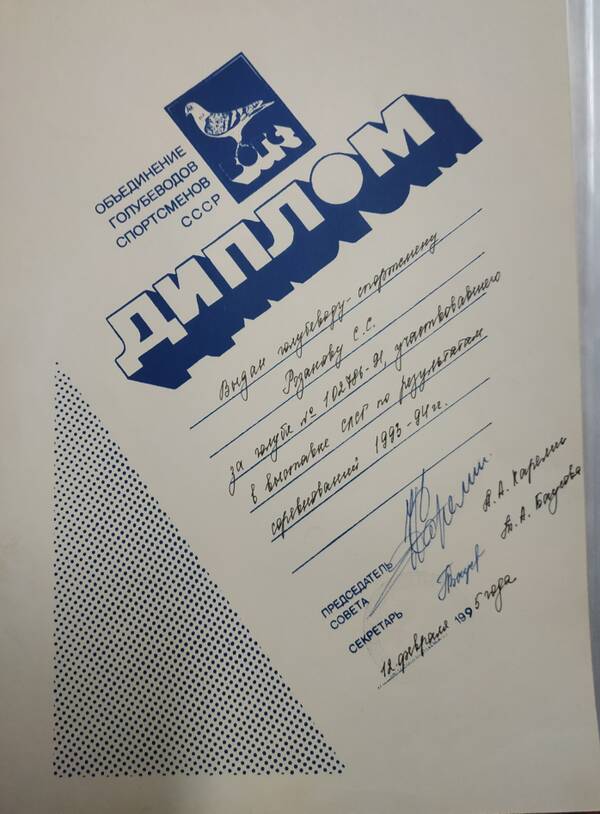 ОБЪЕДИНЕНИЕ
ГОЛУБЕВОДОВ
СПОРТСМЕНОВ
СССР
ДИПЛОМ
Выдан голубеводу-спортсмену
Розанову С.С.
за голубя № 102786-91, участвовавшего
в выставке СЛСГ по результатам
соревнований 1993-94 гг.
ПРЕДСЕДАТЕЛЬ
СОВЕТА
А.А. Карелин
СЕКРЕТАРЬ
А. Баулова
12 февраля 1995 года